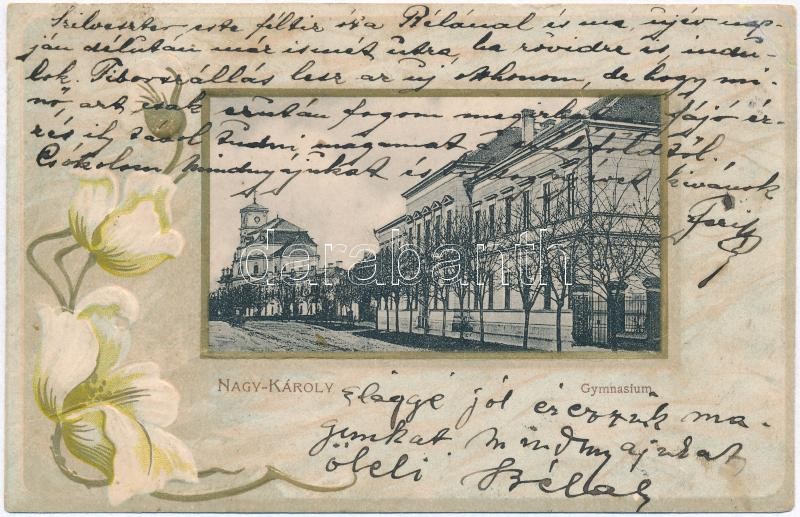 Szilveszter este féltiz óta Bélánál és ma, újév nap-
ján délután már ismét útra, ha rövidre is, indu-
lok. Tiborszállás lesz az új otthonom, de hogy mi-
nő, azt csak ezután fogom fájó ér-
zés ily távol tudni magamat
Csókolom mindnyájukat és kívánok
Fritz
darabanth
NAGY-KÁROLY
Gymnasium
Eléggé jól érezzük ma-
gunkat mindnyájukat
öleli Béláék